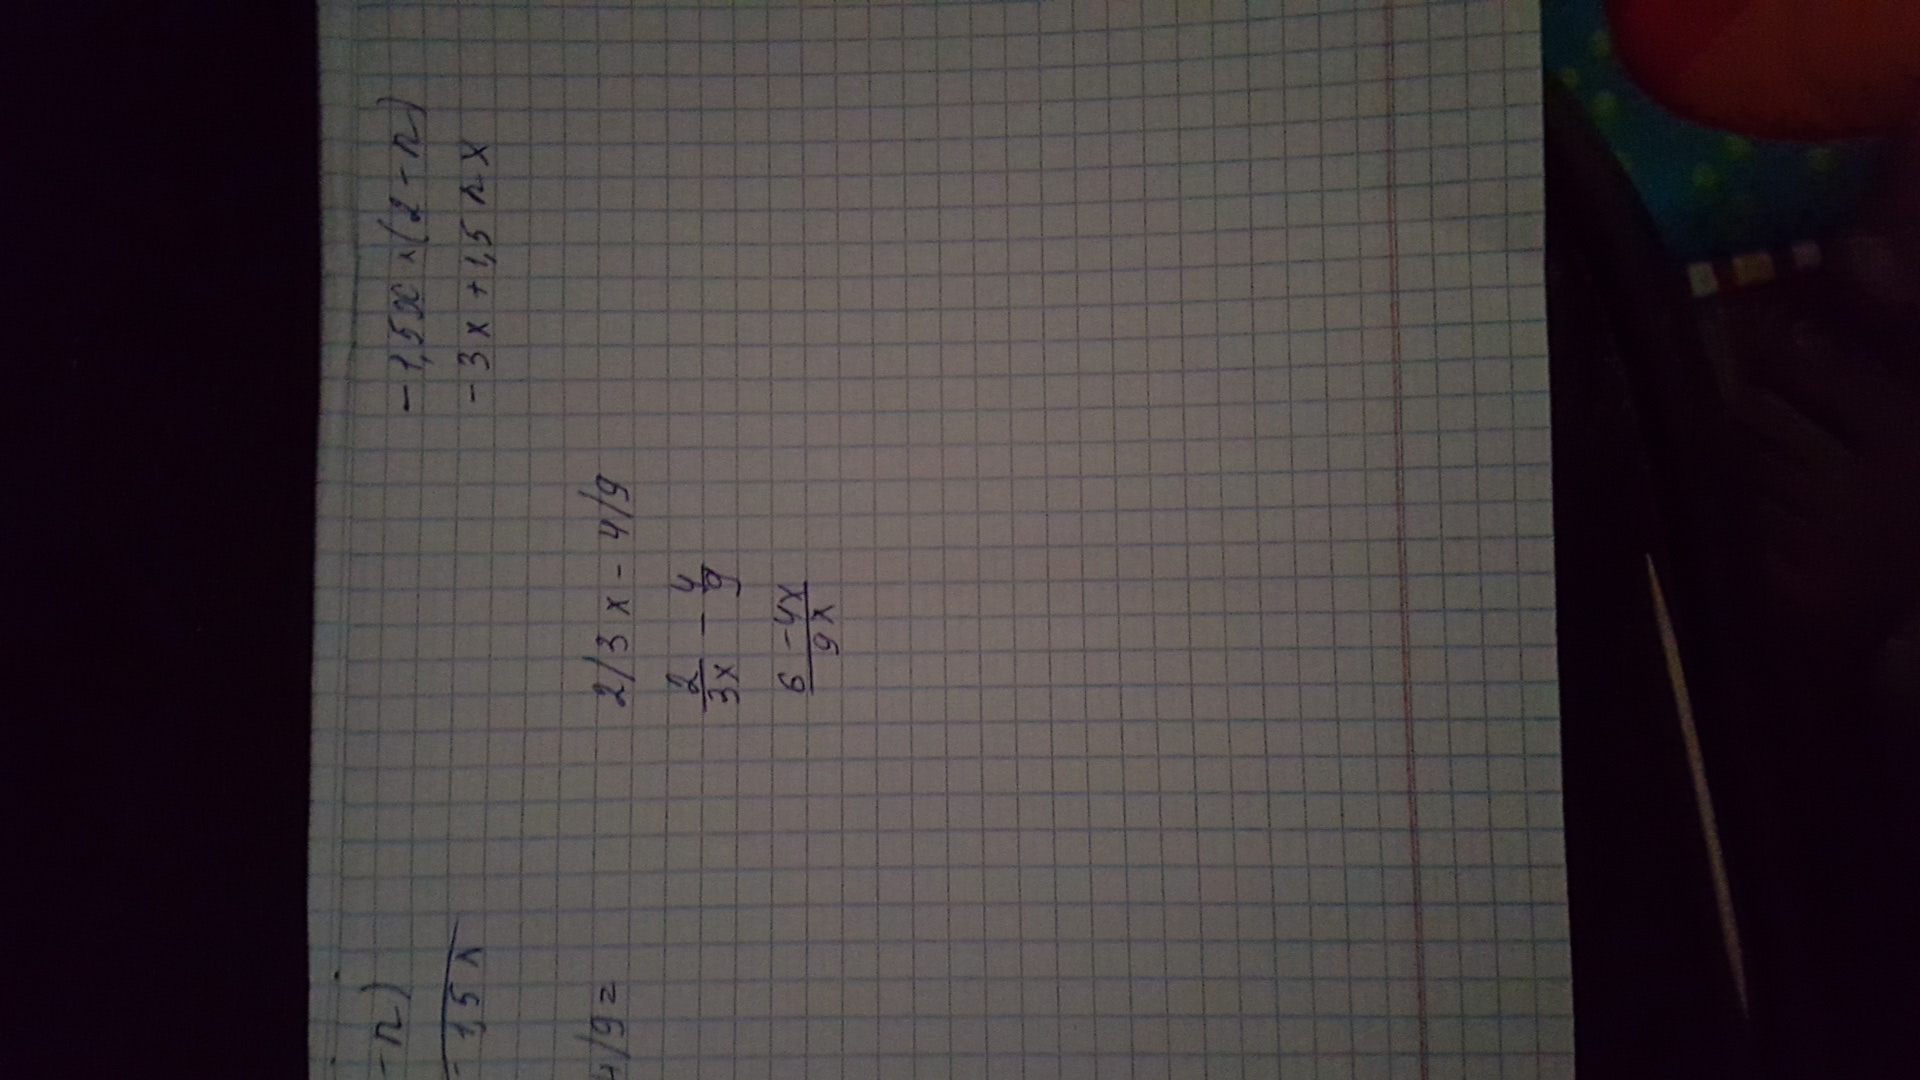 - n)
- 1,5 x
4/9 =
- 1,5x × (2 - n)
- 3 x + 1,5 n x
2/3 x - 4/9
2/3x - 4/9
6 - 4x / 9x